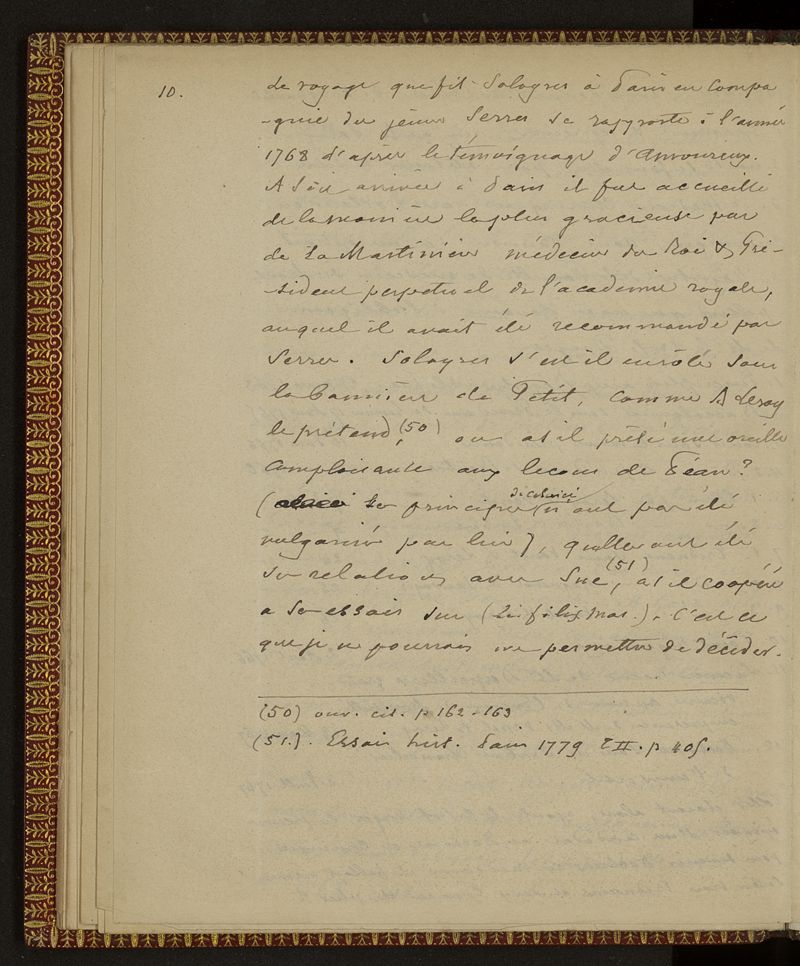 10.
de voyage que fit Solayres à Paris en compa
-gnie du jeune Serres se rapporte à l'année
1768 d'après le témoignage d'Amoureux.
A son arrivée à Paris il fut accueilli
de la manière la plus gracieuse par
de La Martinière médecin du Roi & Pré-
-sident perpetuel de l'academie royale,
auquel il avait été recommandé par
Serres. Solayres s'est il enrôlé sous
la bannière de Petit, comme A Leroy
le prétend, (50) ou at il prêté une oreille
complaisante aux leçons de Péan?
( principes n'ont pas été
vulgarisés par lui), quelles ont été
ses relations avec Sue, (51) at il coopéré
a ses essais sur ( filix mas.). C'est ce
que je ne pourrais me permettre de décider.
(50) ouv. cit. p 162-163
(51.). Essais hist. Paris 1779 T II. p 405.